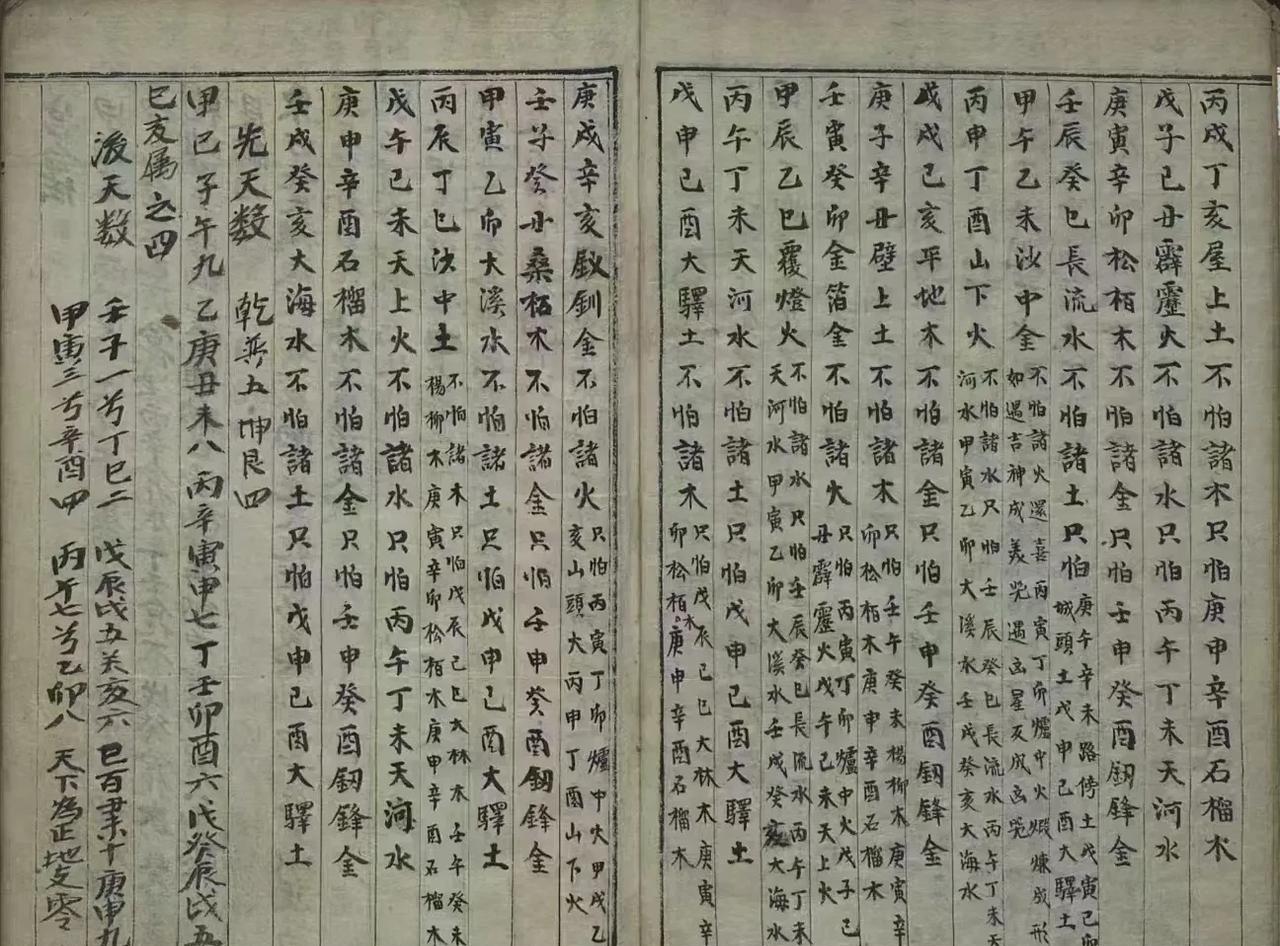 丙戌丁亥屋上土不怕諸木只怕庚申辛酉石榴木
戊子己丑霹靂火不怕諸水只怕丙午丁未天河水
庚寅辛卯松栢木不怕諸金只怕壬申癸酉釖鋒金
壬辰癸巳長流水不怕諸土只怕庚午辛未路傍土戊寅己卯
城頭土戊申己酉大驛土
甲午乙未沙中金不怕諸火還喜丙寅丁卯爐中火煅煉成形
如遇吉神成美凭遇凶星反成凶凭
丙申丁酉山下火不怕諸水只怕壬辰癸巳長流水丙午丁未天
河水甲寅乙卯大溪水壬戌癸亥大海水
戊戌己亥平地木不怕諸金只怕壬申癸酉釖鋒金
庚子辛丑壁上土不怕諸木只怕壬午癸未楊柳木庚寅辛
卯松栢木庚申辛酉石榴木
壬寅癸卯金箔金不怕諸火只怕丙寅丁卯爐中火戊子己
丑霹靂火戊午己未天上火
甲辰乙巳覆燈火不怕諸水只怕壬辰癸巳長流水丙午丁未
天河水甲寅乙卯大溪水壬戌癸亥大海水
丙午丁未天河水不怕諸土只怕戊申己酉大驛土
戊申己酉大驛土不怕諸木只怕戊辰己巳大林木庚寅辛
卯松栢木庚申辛酉石榴木
庚戌辛亥釵釧金不怕諸火只怕丙寅丁卯爐中火甲戌乙
亥山頭火丙申丁酉山下火
壬子癸丑桑栢木不怕諸金只怕壬申癸酉釖鋒金
甲寅乙卯大溪水不怕諸土只怕戊申己酉大驛土
丙辰丁巳沙中土不怕諸木只怕戊辰己巳大林木壬午癸未
楊柳木庚寅辛卯松栢木庚申辛酉石榴木
戊午己未天上火不怕諸水只怕丙午丁未天河水
庚申辛酉石榴木不怕諸金只怕壬申癸酉釖鋒金
壬戌癸亥大海水不怕諸土只怕戊申己酉大驛土
先天数 乾兮五 坤艮四
甲己子午九 乙庚丑未八 丙辛寅申七 丁壬卯酉六 戊癸辰戌五
巳亥属之四
後天数 壬子一兮丁巳二 戊辰戌五癸亥六 己百丑未十庚申九
甲寅三兮辛酉四 丙午七兮乙卯八 天下為正地支零